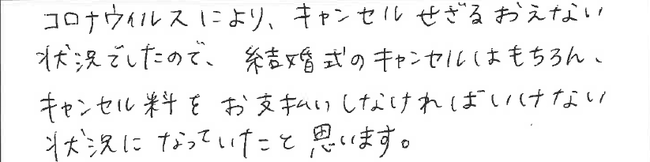 コロナウィルスにより、キャンセルせざるおえない
状況でしたので、結婚式のキャンセルはもちろん、
キャンセル料をお支払いしなければいけない
状況になっていたこと思います。